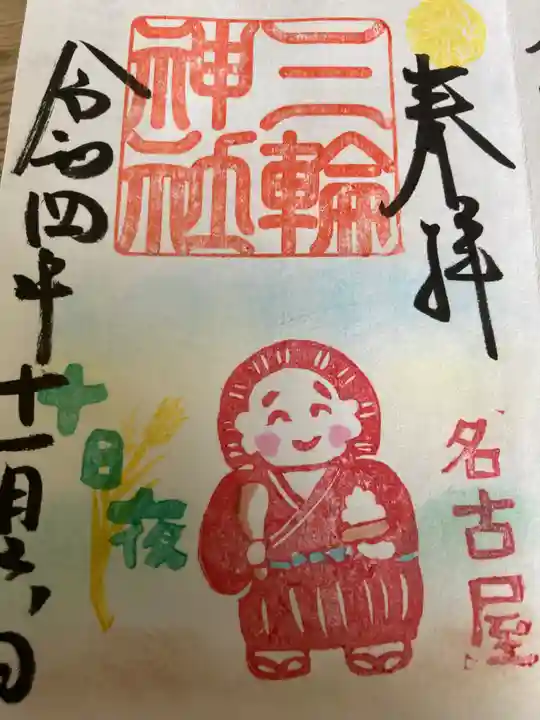 奉拝
三輪
神社
名古屋
十日夜
令和四年十一月六日